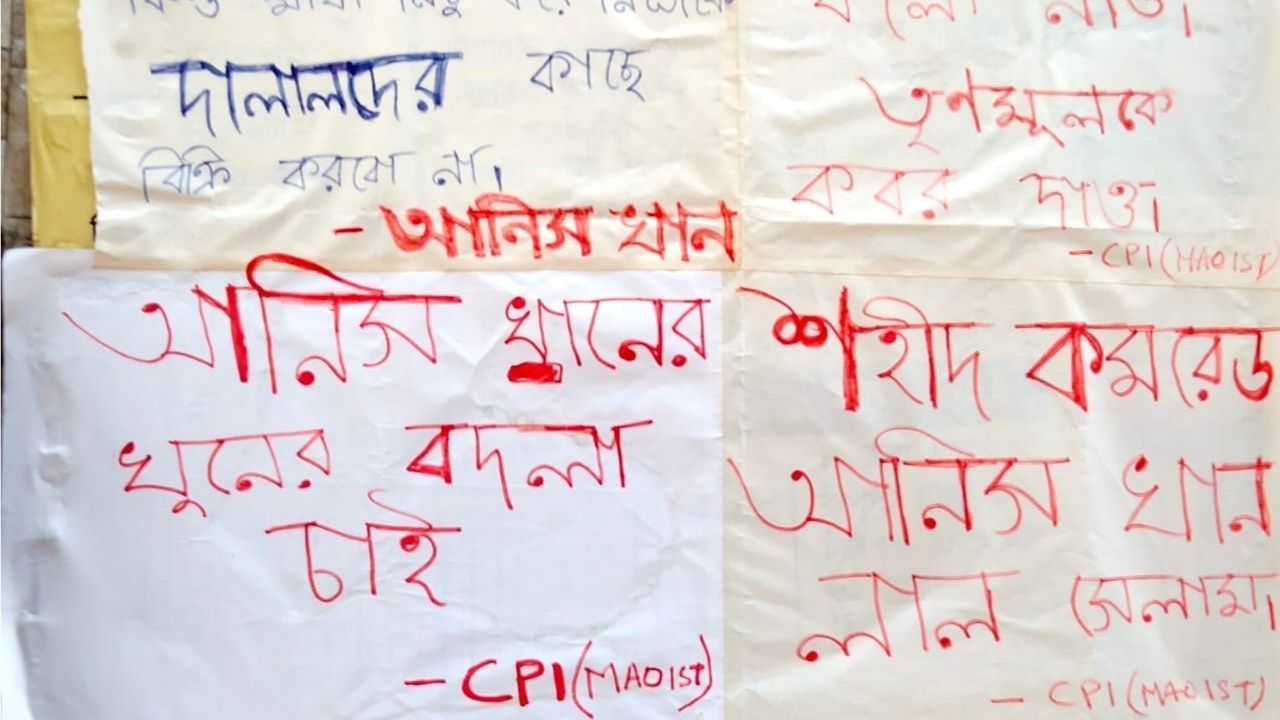 দালালদের কাছে
বিক্রি করবো না।
- আনিস খান
নাও।
তৃণমূলকে
কবর দাও।
- CPI (MAOIST)
আনিস খানের
খুনের বদলা
চাই
- CPI (MAOIST)
শহীদ কমরেড
আনিস খান
লাল সেলাম।
- CPI (MAOIST)